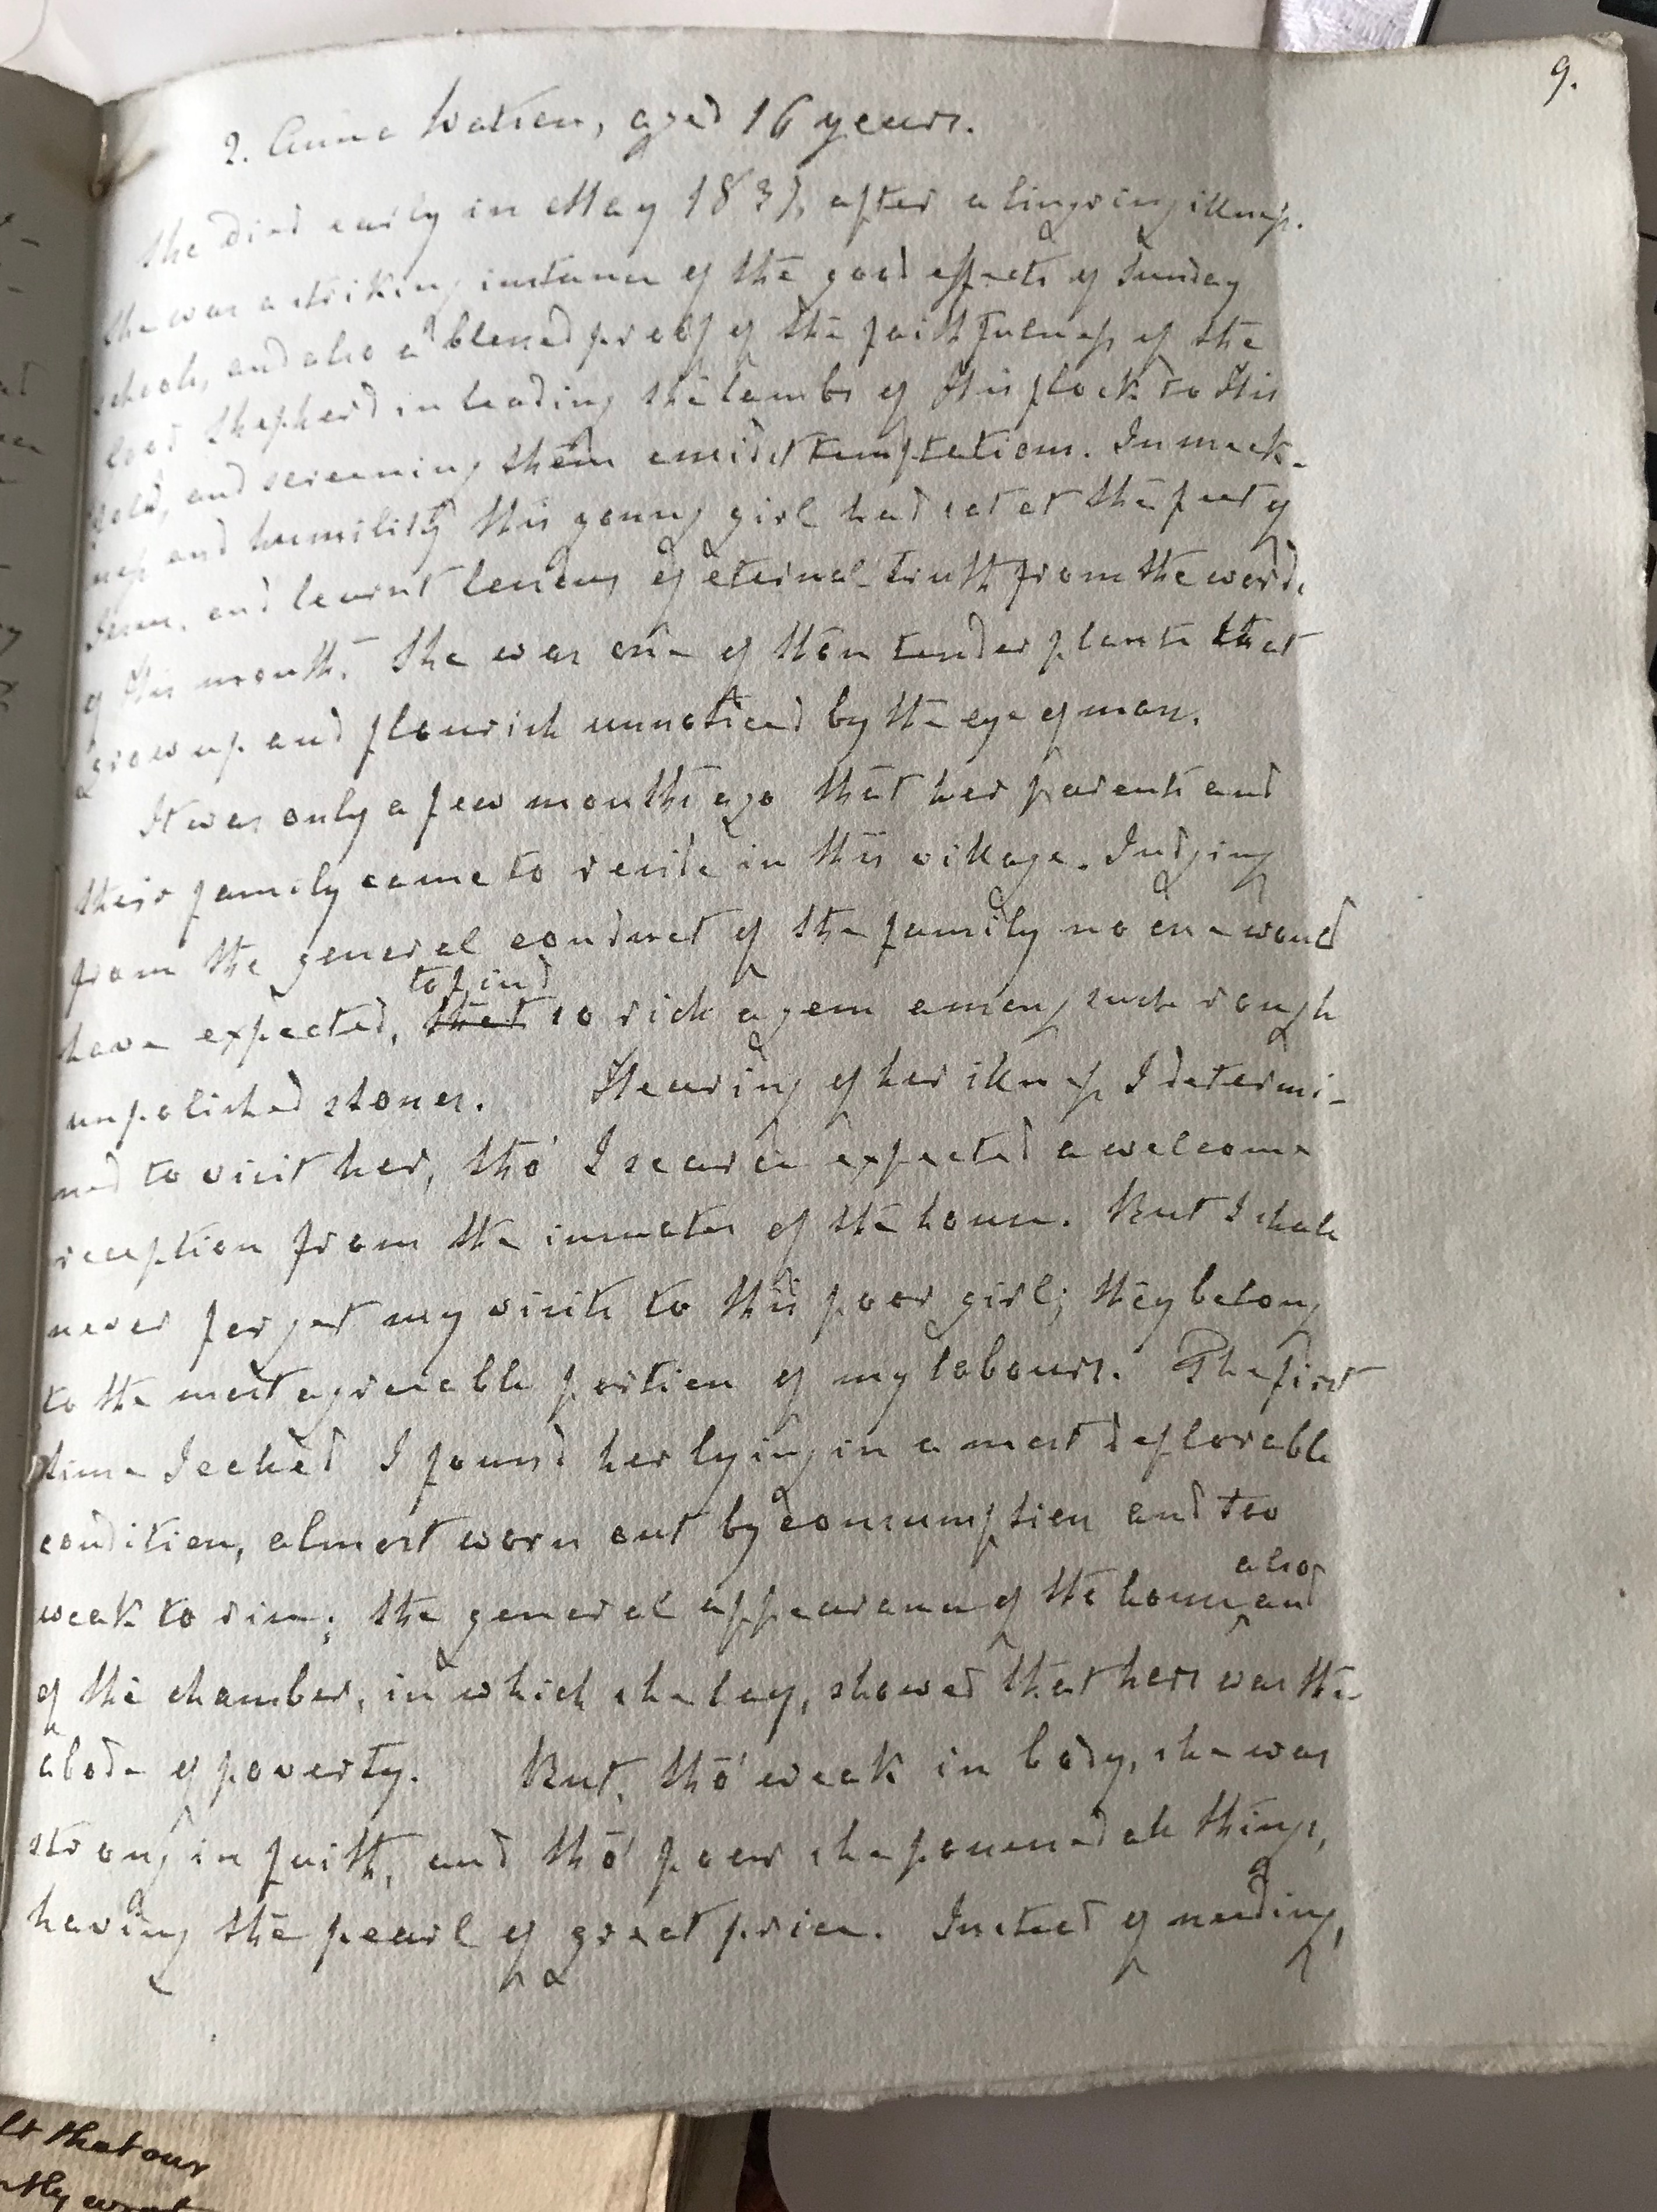 9.
2. Anne Watson, aged 16 years.
She died early in May 1837, after a lingring illness.
She was a striking instance of the good effects of Sunday
schools, and also a blessed proof of the faithfulness of the
Good Shepherd in leading the lambs of His flock to His
fold, and screening them amidst temptations. In meek-
ness and humility this young girl had sat at the feet of
Jesus, and learnt lessons of eternal truth from the words
of His mouth. She was one of those tender plants that
grow up and flourish unnoticed by the eye of man.
It was only a few months ago that her parents and
their family came to reside in this village. Judging
from the general conduct of the family no one would
to find
have expected, that so rich a gem among such rough
unpolished stones. Hearing of her illness I determi-
ned to visit her, tho' I scarce expected a welcome
reception from the inmates of the house. But I shall
never forget my visits to this poor girl; they belong
to the most agreeable portion of my labours. The first
time I called I found her lying in a most deplorable
condition, almost worn out by consumption and too
weak to rise; the general appearance of the house, and
also
of the chamber, in which she lay, showed that hers was the
abode of poverty. But, tho' weak in body, she was
strong in faith, and tho' poor she possessed all things,
having the pearl of great price. Instead of needing,
lt that our